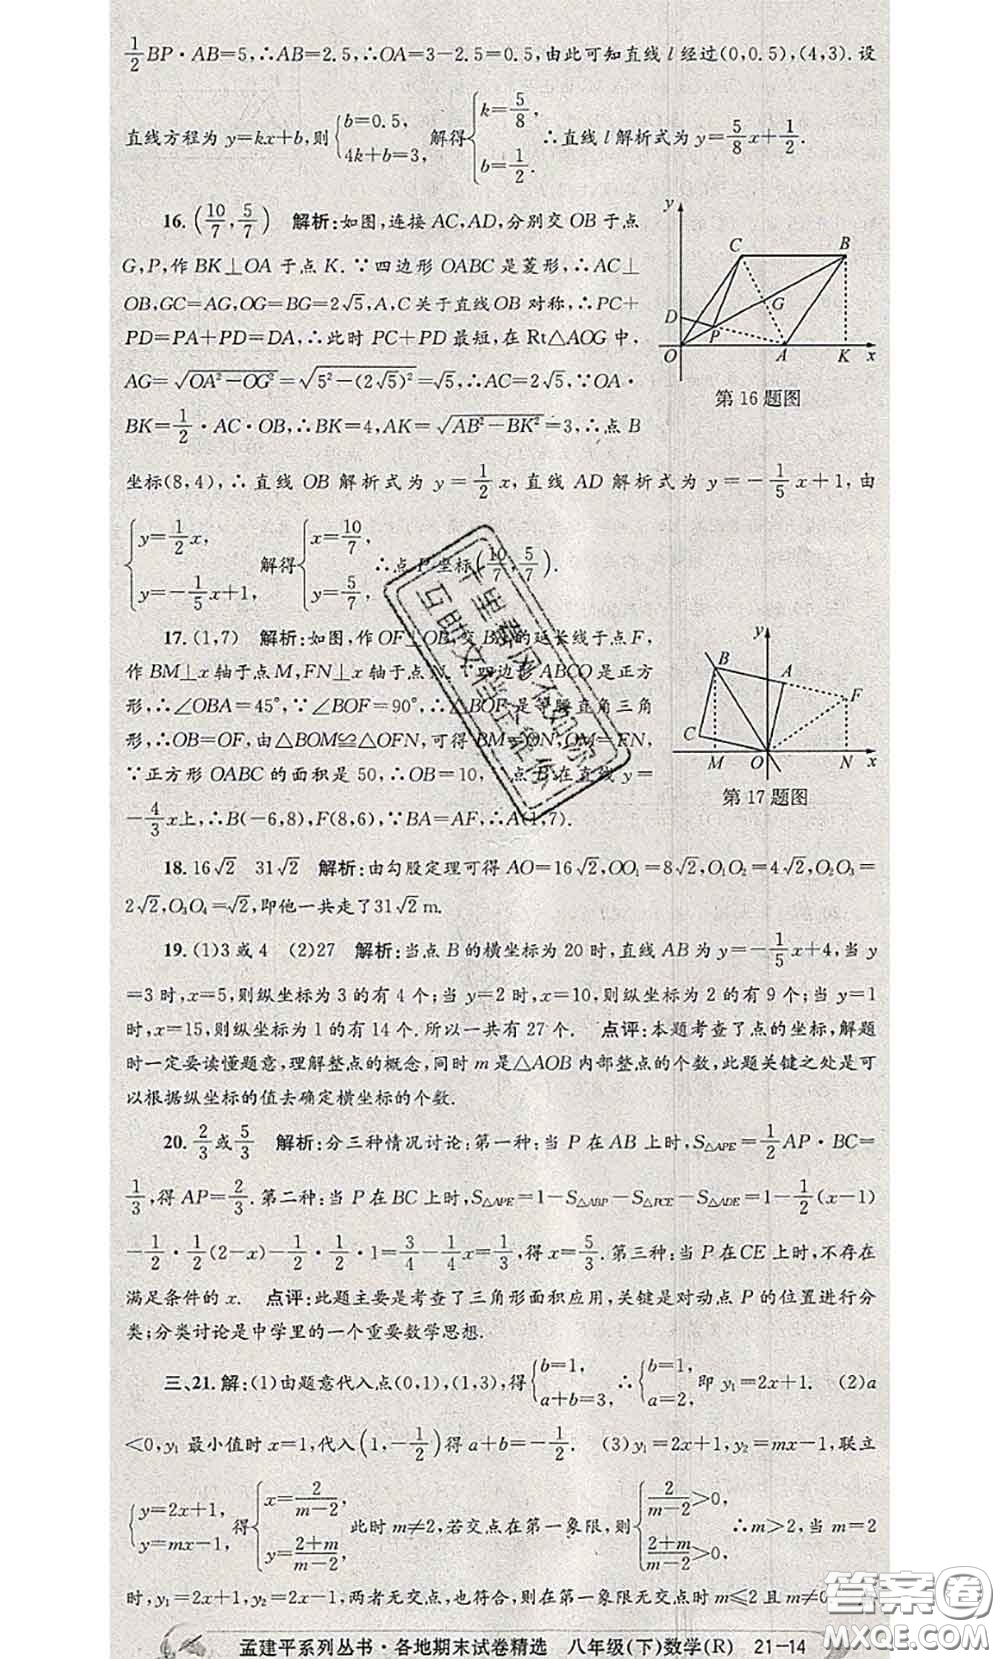 1/2 BP·AB=5,∴AB=2.5,∴OA=3-2.5=0.5,由此可知直线l经过(0,0.5),(4,3).设
直线方程为 y=kx+b,则{b=0.5, 4k+b=3, 解得{k=5/8, b=1/2. ∴直线l解析式为 y=5/8 x+1/2.
16.(10/7,5/7) 解析:如图,连接AC,AD,分别交OB于点
G,P,作BK⊥OA于点K.∵四边形OABC是菱形,∴AC⊥
OB,GC=AG,OG=BG=2√5,A,C关于直线OB对称,∴PC+
PD=PA+PD=DA,∴此时PC+PD最短,在Rt△AOG中,
AG=√(OA²-OG²)=√(5²-(2√5)²)=√5,∴AC=2√5,∵OA·
BK=1/2·AC·OB,∴BK=4,AK=√(AB²-BK²)=3,∴点B
坐标(8,4),∴直线OB解析式为 y=1/2 x,直线AD解析式为 y=-1/5 x+1,由
{y=1/2 x, y=-1/5 x+1, 解得{x=10/7, y=5/7, ∴点P坐标(10/7,5/7).
y C B D G P O A K x
第16题图
17.(1,7) 解析:如图,作OF⊥OB,交BA的延长线于点F,
作BM⊥x轴于点M,FN⊥x轴于点N.∵四边形ABCO是正方
形,∴∠OBA=45°,∵∠BOF=90°,∴△BOF是等腰直角三角
形,∴OB=OF,由△BOM≌△OFN,可得BM=ON,OM=FN,
∵正方形OABC的面积是50,∴OB=10,∵点B在直线y=
-4/3 x上,∴B(-6,8),F(8,6),∵BA=AF,∴A(1,7).
y B A F C M O N x
第17题图
18.16√2 31√2 解析:由勾股定理可得AO=16√2,OO₁=8√2,O₁O₂=4√2,O₂O₃=
2√2,O₃O₄=√2,即他一共走了31√2 m.
19.(1)3或4 (2)27 解析:当点B的横坐标为20时,直线AB为y=-1/5 x+4,当y
=3时,x=5,则纵坐标为3的有4个;当y=2时,x=10,则纵坐标为2的有9个;当y=1
时,x=15,则纵坐标为1的有14个.所以一共有27个. 点评:本题考查了点的坐标,解题
时一定要读懂题意,理解整点的概念,同时m是△AOB内部整点的个数,此题关键之处是可
以根据纵坐标的值去确定横坐标的个数.
20. 2/3或5/3 解析:分三种情况讨论:第一种:当P在AB上时,S△APE=1/2 AP·BC=
1/3,得AP=2/3.第二种:当P在BC上时,S△APE=1-S△ABP-S△PCE-S△ADE=1-1/2(x-1)
-1/2·1/2(2-x)-1/2·1/2·1=3/4-1/4 x=1/3,得x=5/3.第三种:当P在CE上时,不存在
满足条件的x. 点评:此题主要是考查了三角形面积应用,关键是对动点P的位置进行分
类;分类讨论是中学里的一个重要数学思想.
三、21.解:(1)由题意代入点(0,1),(1,3),得{b=1, a+b=3, ∴{b=1, a=2, 即y₁=2x+1. (2)a
<0,y₁最小值时x=1,代入(1,-1/2)得a+b=-1/2. (3)y₁=2x+1,y₂=mx-1,联立
{y=2x+1, y=mx-1, 得{x=2/(m-2), y=(2+m)/(m-2), 此时m≠2,若交点在第一象限,则{2/(m-2)>0, (2+m)/(m-2)>0 ∴m>2,当m=2
时,y₁=2x+1,y₂=2x-1,两者无交点,也符合,则在第一象限无交点时m≤2且m≠0.
孟建平系列丛书·各地期末试卷精选 八年级(下)数学(R) 21-14
千里春风不如你
互助文档全靠你
答案圈
MXQE.COM